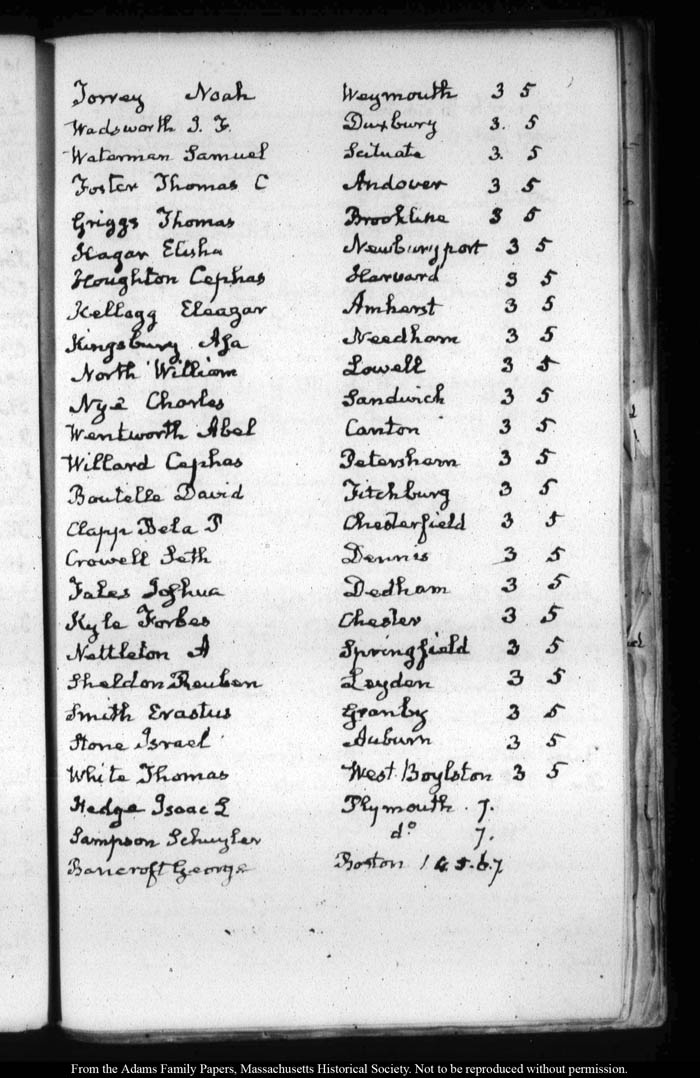 Torrey Noah Weymouth 3 5
Wadsworth J. F. Duxbury 3. 5
Waterman Samuel Scituate 3. 5
Foster Thomas C Andover 3 5
Griggs Thomas Brookline 3 5
Hagar Elisha Newburyport 3 5
Houghton Cephas Harvard 3 5
Kellogg Eleazar Amherst 3 5
Kingsbury Asa Needham 3 5
North William Lowell 3 5
Nye Charles Sandwich 3 5
Wentworth Abel Canton 3 5
Willard Cephas Petersham 3 5
Boutelle David Fitchburg 3 5
Clapp Bela P Chesterfield 3 5
Crowell Seth Dennis 3 5
Fales Joshua Dedham 3 5
Kyle Forbes Chester 3 5
Nettleton A Springfield 3 5
Sheldon Reuben Leyden 3 5
Smith Erastus Granby 3 5
Stone Israel Auburn 3 5
White Thomas West Boylston 3 5
Hedge Isaac L Plymouth. 7.
Sampson Schuyler do 7.
Bancroft George Boston 1 4. 5. 6. 7
From the Adams Family Papers, Massachusetts Historical Society. Not to be reproduced without permission.